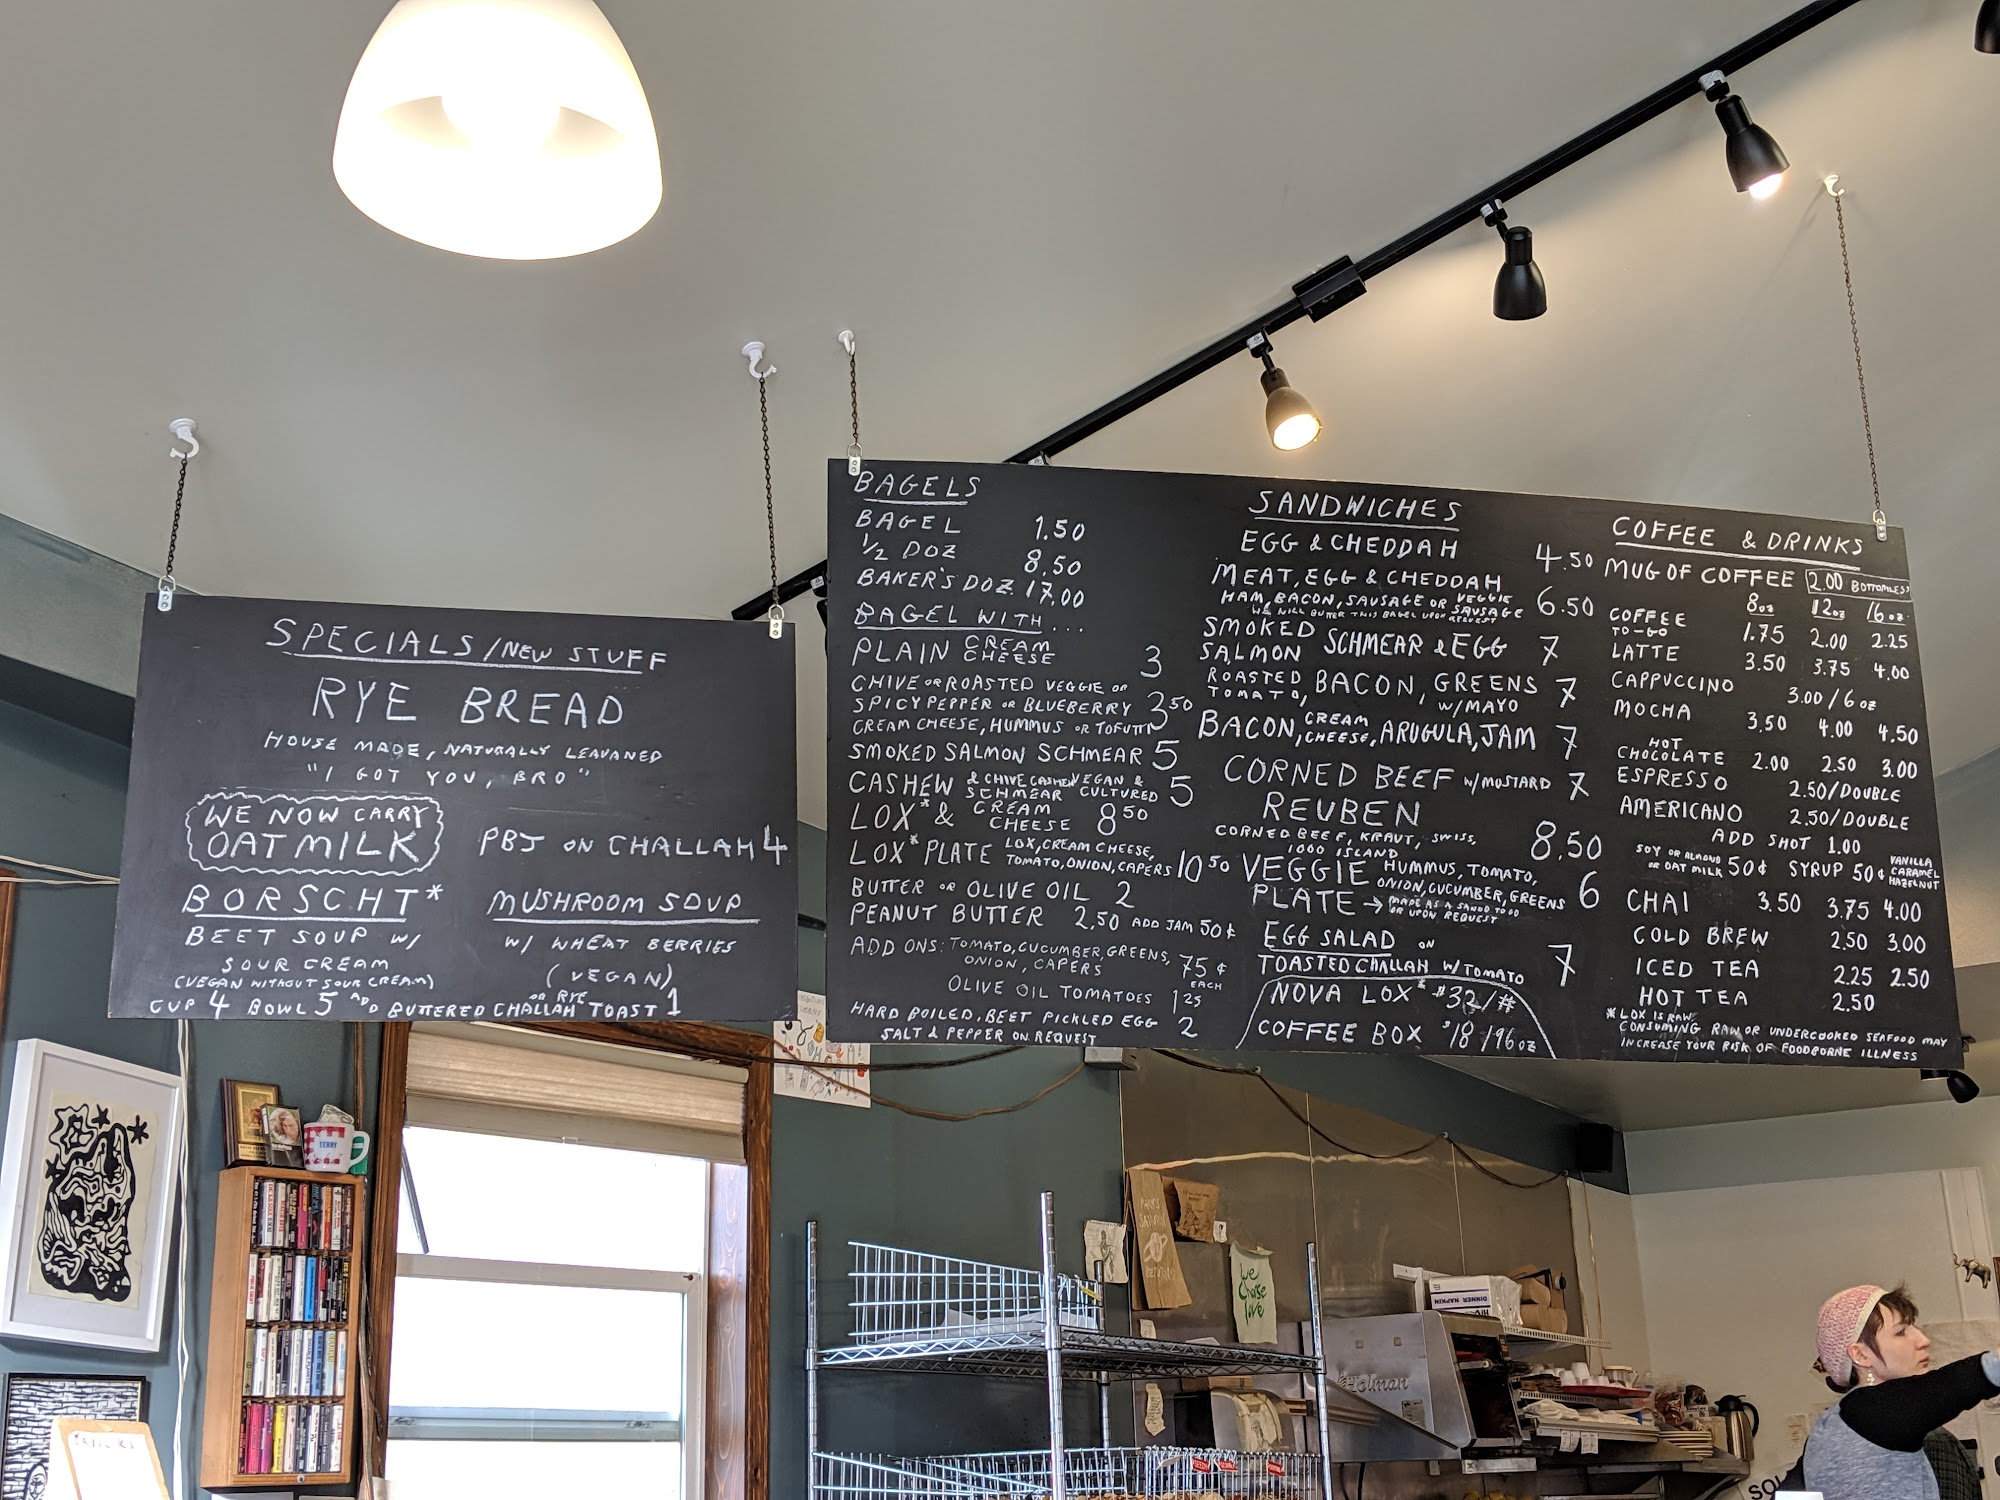 SPECIALS/NEW STUFF
RYE BREAD
HOUSE MADE, NATURALLY LEAVANED
"I GOT YOU, BRO"
WE NOW CARRY
OAT MILK
PBJ ON CHALLAH 4
BORSCHT*
BEET SOUP W/
SOUR CREAM
(VEGAN WITHOUT SOUR CREAM)
MUSHROOM SOUP
W/ WHEAT BERRIES
(VEGAN)
CUP 4 BOWL 5 ADD BUTTERED CHALLAH OR RYE TOAST 1
BAGELS
BAGEL 1.50
1/2 DOZ 8.50
BAKER'S DOZ. 17.00
BAGEL WITH...
PLAIN CREAM CHEESE 3
CHIVE OR ROASTED VEGGIE OR
SPICY PEPPER OR BLUEBERRY 3.50
CREAM CHEESE, HUMMUS OR TOFUTTI
SMOKED SALMON SCHMEAR 5
CASHEW & CHIVE CASHEW SCHMEAR VEGAN & CULTURED 5
LOX* & CREAM CHEESE 8.50
LOX* PLATE LOX, CREAM CHEESE, TOMATO, ONION, CAPERS 10.50
BUTTER OR OLIVE OIL 2
PEANUT BUTTER 2.50 ADD JAM 50¢
ADD ONS: TOMATO, CUCUMBER, GREENS,
ONION, CAPERS 75¢ EACH
OLIVE OIL TOMATOES 1.25
HARD BOILED, BEET PICKLED EGG 2
SALT & PEPPER ON REQUEST
SANDWICHES
EGG & CHEDDAH 4.50
MEAT, EGG & CHEDDAH 6.50
HAM, BACON, SAUSAGE OR VEGGIE SAUSAGE
WE WILL BUTTER THIS BAGEL UPON REQUEST
SMOKED SALMON SCHMEAR & EGG 7
ROASTED TOMATO, BACON, GREENS W/MAYO 7
BACON, CREAM CHEESE, ARUGULA, JAM 7
CORNED BEEF W/MUSTARD 7
REUBEN 8.50
CORNED BEEF, KRAUT, SWISS,
1000 ISLAND
VEGGIE PLATE HUMMUS, TOMATO,
ONION, CUCUMBER, GREENS 6
→ MADE AS A SANDO TO GO
OR UPON REQUEST
EGG SALAD ON
TOASTED CHALLAH W/ TOMATO 7
NOVA LOX* $32/#
COFFEE BOX $18/96oz
COFFEE & DRINKS
MUG OF COFFEE 2.00 BOTTOMLESS
8oz 12oz 16oz
COFFEE TO-GO 1.75 2.00 2.25
LATTE 3.50 3.75 4.00
CAPPUCCINO 3.00/6oz
MOCHA 3.50 4.00 4.50
HOT CHOCOLATE 2.00 2.50 3.00
ESPRESSO 2.50/DOUBLE
AMERICANO 2.50/DOUBLE
ADD SHOT 1.00
SOY OR ALMOND OR OAT MILK 50¢ SYRUP 50¢ VANILLA CARAMEL HAZELNUT
CHAI 3.50 3.75 4.00
COLD BREW 2.50 3.00
ICED TEA 2.25 2.50
HOT TEA 2.50
*LOX IS RAW
CONSUMING RAW OR UNDERCOOKED SEAFOOD MAY
INCREASE YOUR RISK OF FOODBORNE ILLNESS
TERRY
We
Choose
love
DINNER NAPKIN
Holman